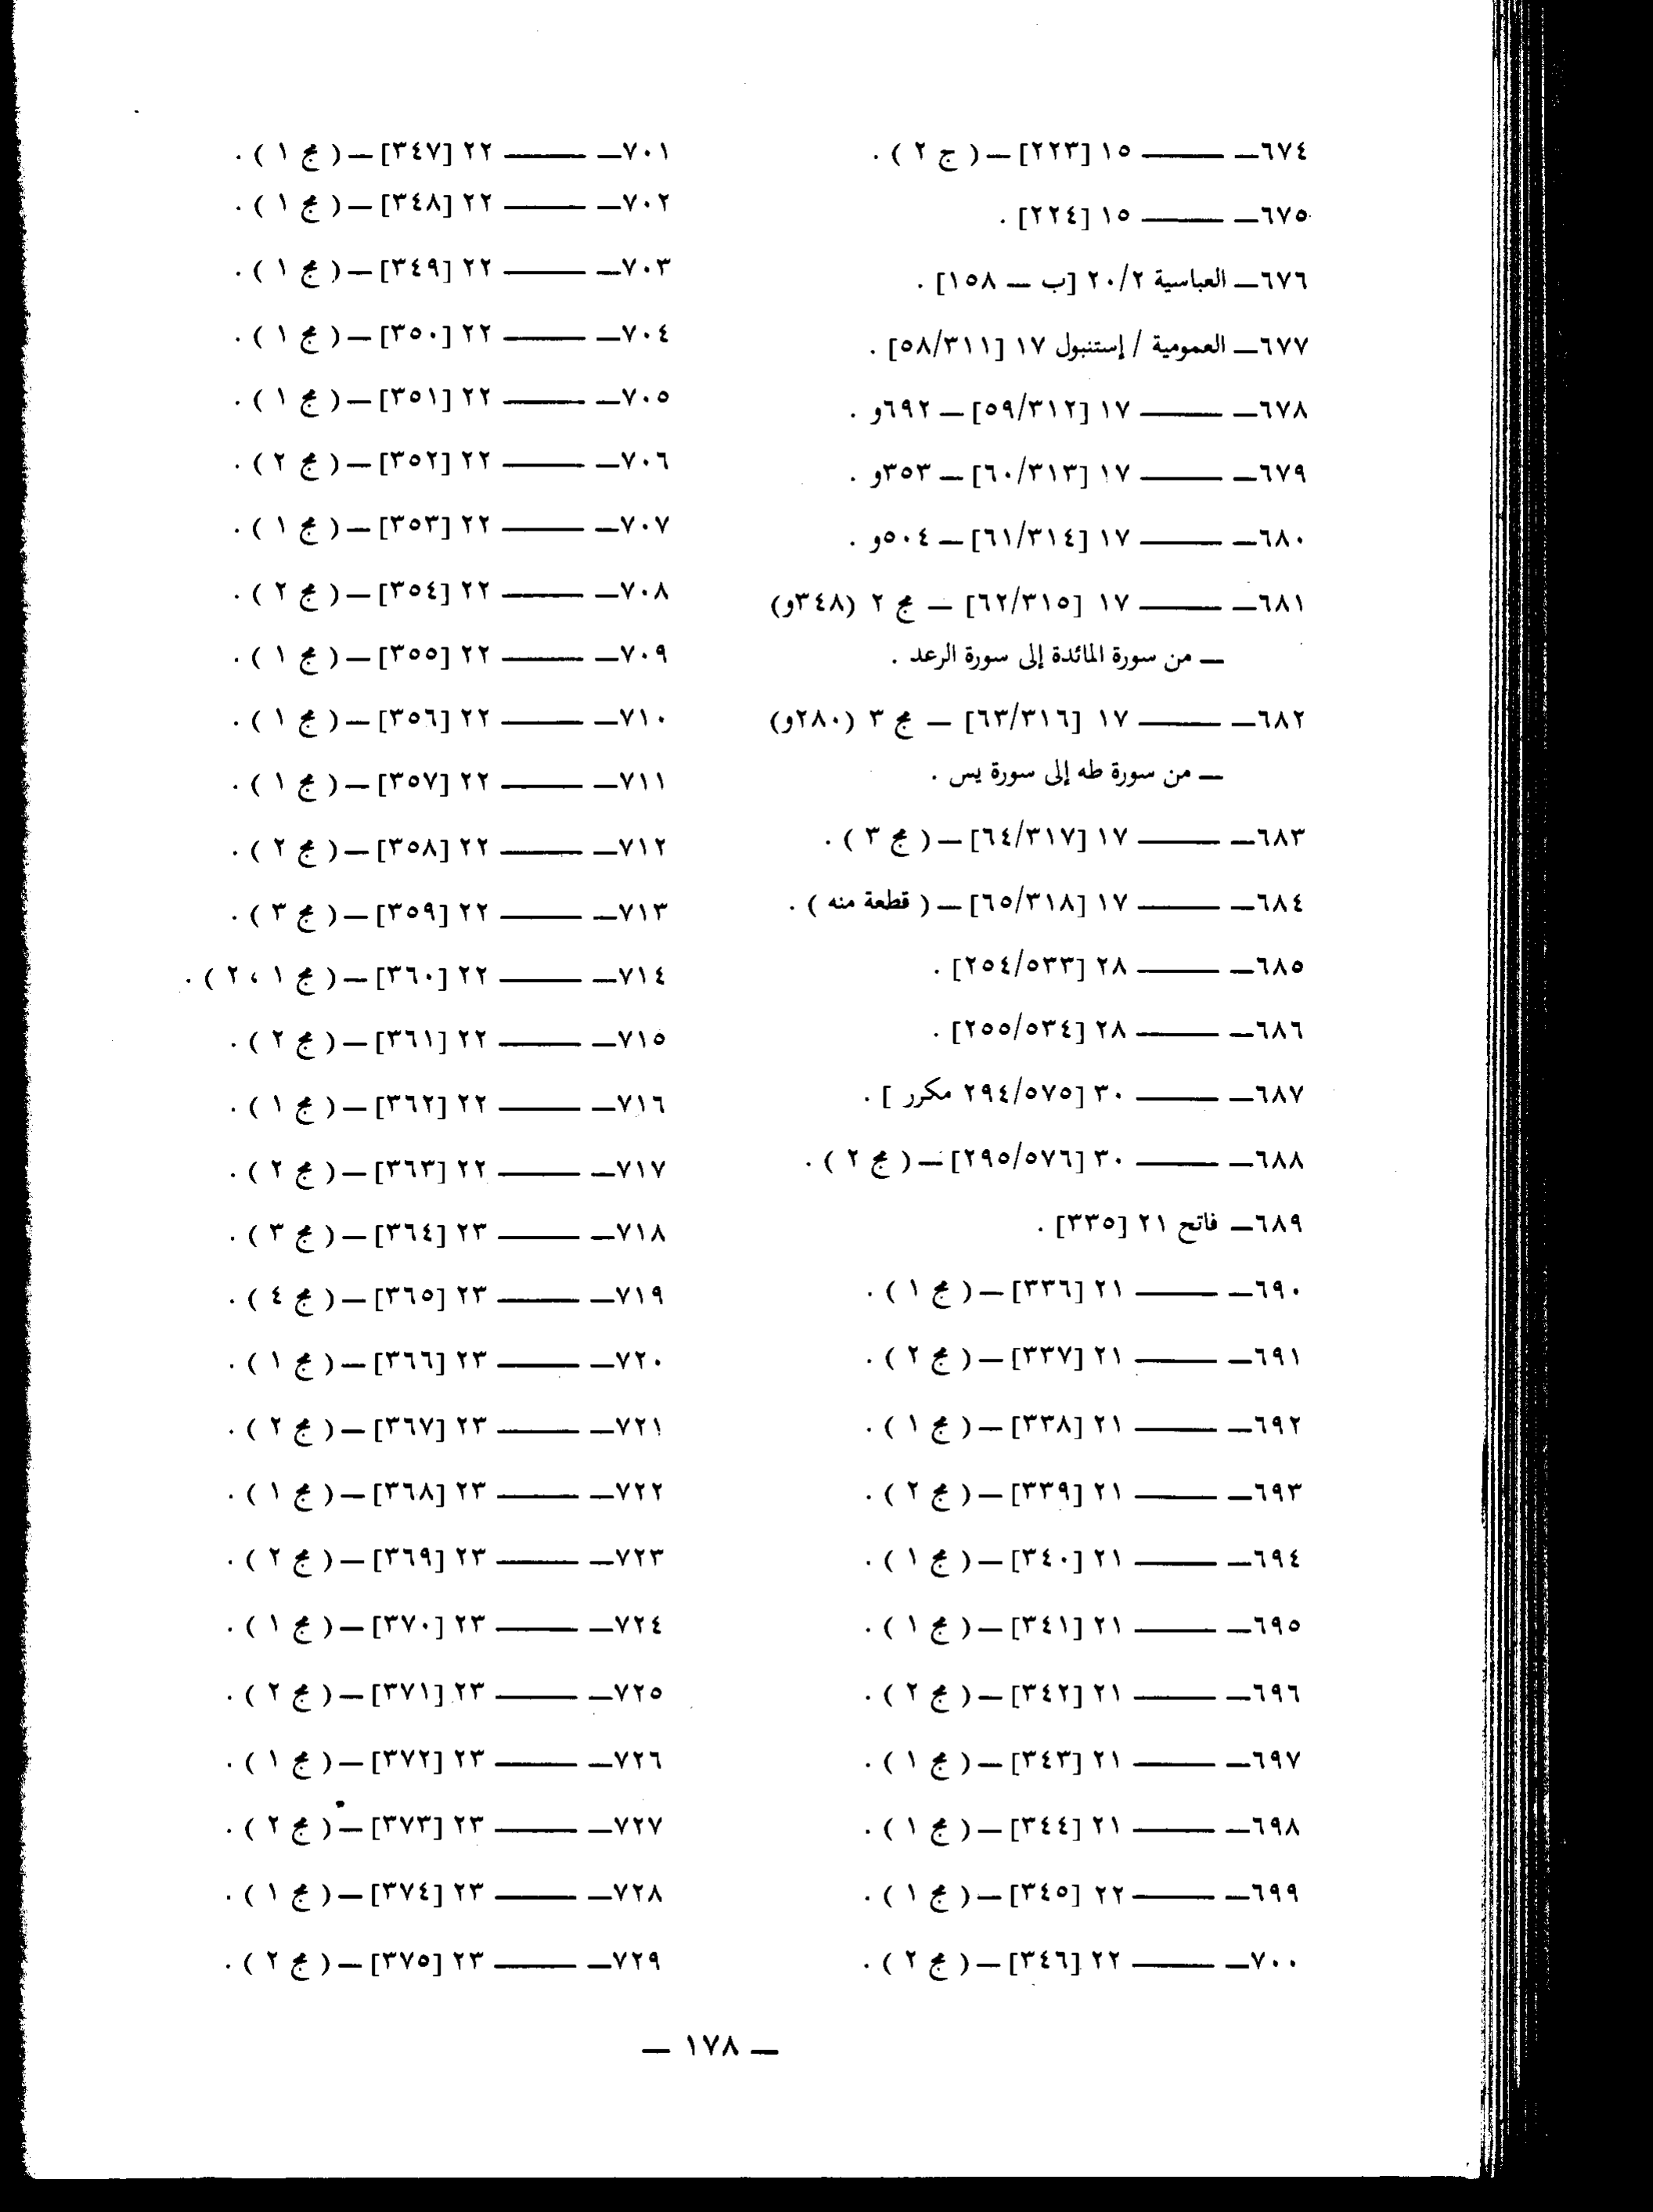 ٦٧٤ــ ـــــــ ١٥ [٢٢٣] ــ ( ج ٢ ) .
٦٧٥ــ ـــــــ ١٥ [٢٢٤] .
٦٧٦ــ العباسية ٢٠/٢ [ب ــ ١٥٨] .
٦٧٧ــ العمومية / إستنبول ١٧ [٥٨/٣١١] .
٦٧٨ــ ـــــــ ١٧ [٥٩/٣١٢] ــ ٦٩٢و .
٦٧٩ــ ـــــــ ١٧ [٦٠/٣١٣] ــ ٣٥٣و .
٦٨٠ــ ـــــــ ١٧ [٦١/٣١٤] ــ ٥٠٤و .
٦٨١ــ ـــــــ ١٧ [٦٢/٣١٥] ــ مج ٢ (٣٤٨و)
ــ من سورة المائدة إلى سورة الرعد .
٦٨٢ــ ـــــــ ١٧ [٦٣/٣١٦] ــ مج ٣ (٢٨٠و)
ــ من سورة طه إلى سورة يس .
٦٨٣ــ ـــــــ ١٧ [٦٤/٣١٧] ــ ( مج ٣ ) .
٦٨٤ــ ـــــــ ١٧ [٦٥/٣١٨] ــ ( قطعة منه ) .
٦٨٥ــ ـــــــ ٢٨ [٢٥٤/٥٣٣] .
٦٨٦ــ ـــــــ ٢٨ [٢٥٥/٥٣٤] .
٦٨٧ــ ـــــــ ٣٠ [٢٩٤/٥٧٥ مكرر ] .
٦٨٨ــ ـــــــ ٣٠ [٢٩٥/٥٧٦] ــ ( مج ٢ ) .
٦٨٩ــ فاتح ٢١ [٣٣٥] .
٦٩٠ــ ـــــــ ٢١ [٣٣٦] ــ ( مج ١ ) .
٦٩١ــ ـــــــ ٢١ [٣٣٧] ــ ( مج ٢ ) .
٦٩٢ــ ـــــــ ٢١ [٣٣٨] ــ ( مج ١ ) .
٦٩٣ــ ـــــــ ٢١ [٣٣٩] ــ ( مج ٢ ) .
٦٩٤ــ ـــــــ ٢١ [٣٤٠] ــ ( مج ١ ) .
٦٩٥ــ ـــــــ ٢١ [٣٤١] ــ ( مج ١ ) .
٦٩٦ــ ـــــــ ٢١ [٣٤٢] ــ ( مج ٢ ) .
٦٩٧ــ ـــــــ ٢١ [٣٤٣] ــ ( مج ١ ) .
٦٩٨ــ ـــــــ ٢١ [٣٤٤] ــ ( مج ١ ) .
٦٩٩ــ ـــــــ ٢٢ [٣٤٥] ــ ( مج ١ ) .
٧٠٠ــ ـــــــ ٢٢ [٣٤٦] ــ ( مج ٢ ) .
٧٠١ــ ـــــــ ٢٢ [٣٤٧] ــ ( مج ١ ) .
٧٠٢ــ ـــــــ ٢٢ [٣٤٨] ــ ( مج ١ ) .
٧٠٣ــ ـــــــ ٢٢ [٣٤٩] ــ ( مج ١ ) .
٧٠٤ــ ـــــــ ٢٢ [٣٥٠] ــ ( مج ١ ) .
٧٠٥ــ ـــــــ ٢٢ [٣٥١] ــ ( مج ١ ) .
٧٠٦ــ ـــــــ ٢٢ [٣٥٢] ــ ( مج ٢ ) .
٧٠٧ــ ـــــــ ٢٢ [٣٥٣] ــ ( مج ١ ) .
٧٠٨ــ ـــــــ ٢٢ [٣٥٤] ــ ( مج ٢ ) .
٧٠٩ــ ـــــــ ٢٢ [٣٥٥] ــ ( مج ١ ) .
٧١٠ــ ـــــــ ٢٢ [٣٥٦] ــ ( مج ١ ) .
٧١١ــ ـــــــ ٢٢ [٣٥٧] ــ ( مج ١ ) .
٧١٢ــ ـــــــ ٢٢ [٣٥٨] ــ ( مج ٢ ) .
٧١٣ــ ـــــــ ٢٢ [٣٥٩] ــ ( مج ٣ ) .
٧١٤ــ ـــــــ ٢٢ [٣٦٠] ــ ( مج ١ ، ٢ ) .
٧١٥ــ ـــــــ ٢٢ [٣٦١] ــ ( مج ٢ ) .
٧١٦ــ ـــــــ ٢٢ [٣٦٢] ــ ( مج ١ ) .
٧١٧ــ ـــــــ ٢٢ [٣٦٣] ــ ( مج ٢ ) .
٧١٨ــ ـــــــ ٢٣ [٣٦٤] ــ ( مج ٣ ) .
٧١٩ــ ـــــــ ٢٣ [٣٦٥] ــ ( مج ٤ ) .
٧٢٠ــ ـــــــ ٢٣ [٣٦٦] ــ ( مج ١ ) .
٧٢١ــ ـــــــ ٢٣ [٣٦٧] ــ ( مج ٢ ) .
٧٢٢ــ ـــــــ ٢٣ [٣٦٨] ــ ( مج ١ ) .
٧٢٣ــ ـــــــ ٢٣ [٣٦٩] ــ ( مج ٢ ) .
٧٢٤ــ ـــــــ ٢٣ [٣٧٠] ــ ( مج ١ ) .
٧٢٥ــ ـــــــ ٢٣ [٣٧١] ــ ( مج ٢ ) .
٧٢٦ــ ـــــــ ٢٣ [٣٧٢] ــ ( مج ١ ) .
٧٢٧ــ ـــــــ ٢٣ [٣٧٣] ــ ( مج ٢ ) .
٧٢٨ــ ـــــــ ٢٣ [٣٧٤] ــ ( مج ١ ) .
٧٢٩ــ ـــــــ ٢٣ [٣٧٥] ــ ( مج ٢ ) .
ــ ١٧٨ ــ